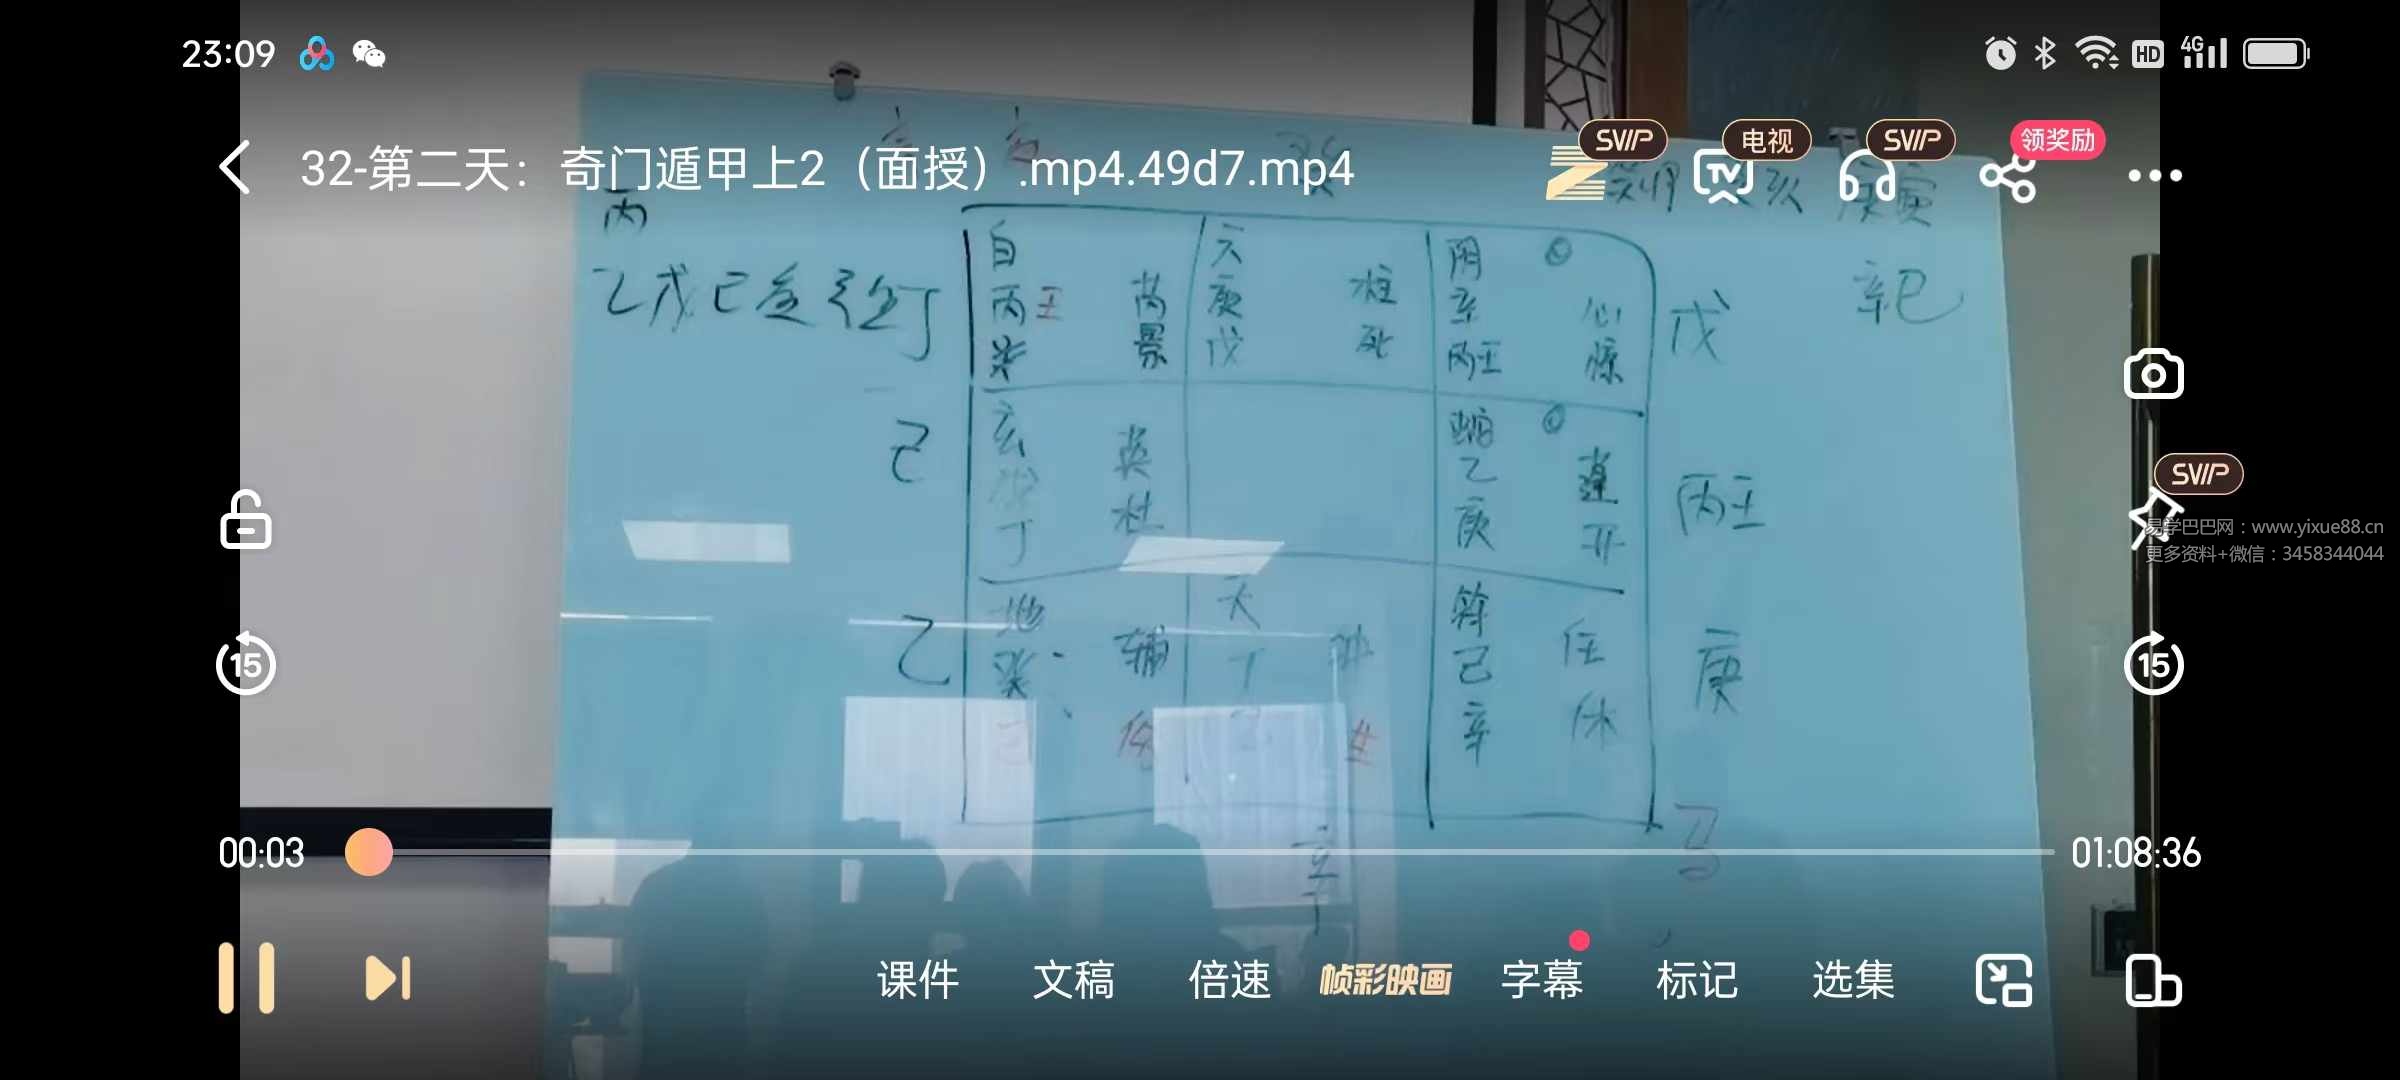 23:09
HD 4G
SVIP 电视 SVIP 领奖励
32-第二天：奇门遁甲上2（面授）.mp4.49d7.mp4
丙
庚寅
乙戊己
丁
辛巳
白 天 阴
丙壬 芮 庚 柱 辛 心
景 戊 死 丙壬 惊
戊
己
玄 英 蛇 蓬
丁 杜 乙 开
庚
丙壬
SVIP
易学巴巴网：www.yixue88.cn
更多资料+微信：3458344044
乙
地 辅 天 符 任
癸 丁 己 休
己 生 辛
庚
马
15
15
00:03
01:08:36
课件 文稿 倍速 帧彩映画 字幕 标记 选集